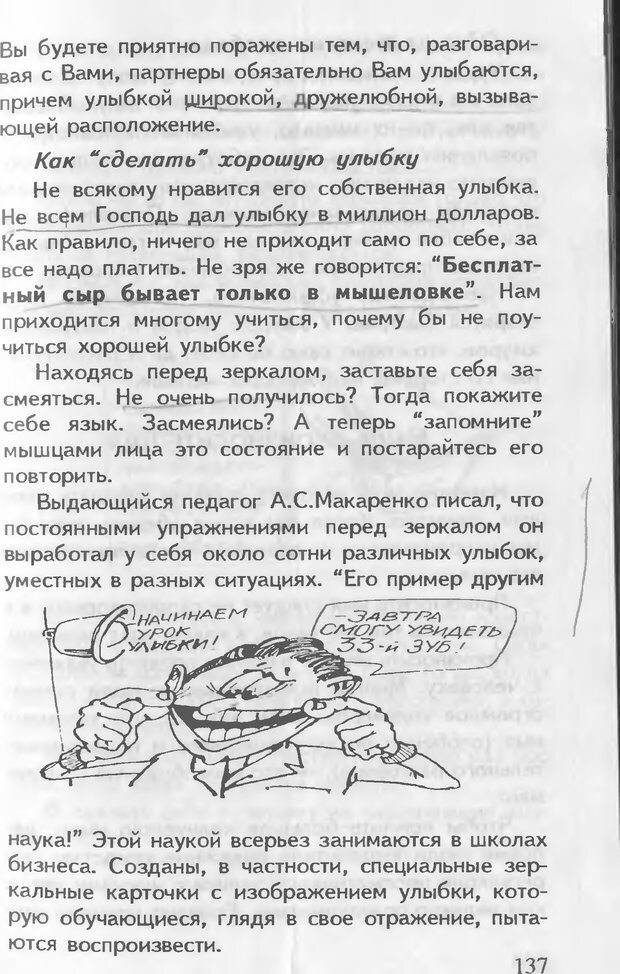 Вы будете приятно поражены тем, что, разговари-
вая с Вами, партнеры обязательно Вам улыбаются,
причем улыбкой широкой, дружелюбной, вызыва-
ющей расположение.
Как “сделать” хорошую улыбку
Не всякому нравится его собственная улыбка.
Не всем Господь дал улыбку в миллион долларов.
Как правило, ничего не приходит само по себе, за
все надо платить. Не зря же говорится: “Бесплат-
ный сыр бывает только в мышеловке”. Нам
приходится многому учиться, почему бы не поу-
читься хорошей улыбке?
Находясь перед зеркалом, заставьте себя за-
смеяться. Не очень получилось? Тогда покажите
себе язык. Засмеялись? А теперь “запомните”
мышцами лица это состояние и постарайтесь его
повторить.
Выдающийся педагог А.С.Макаренко писал, что
постоянными упражнениями перед зеркалом он
выработал у себя около сотни различных улыбок,
уместных в разных ситуациях. “Его пример другим
НАЧИНАЕМ
УРОК
УЛЫБКИ!
- ЗАВТРА
СМОГУ УВИДЕТЬ
33-й ЗУБ!
наука!” Этой наукой всерьез занимаются в школах
бизнеса. Созданы, в частности, специальные зер-
кальные карточки с изображением улыбки, кото-
рую обучающиеся, глядя в свое отражение, пыта-
ются воспроизвести.
137